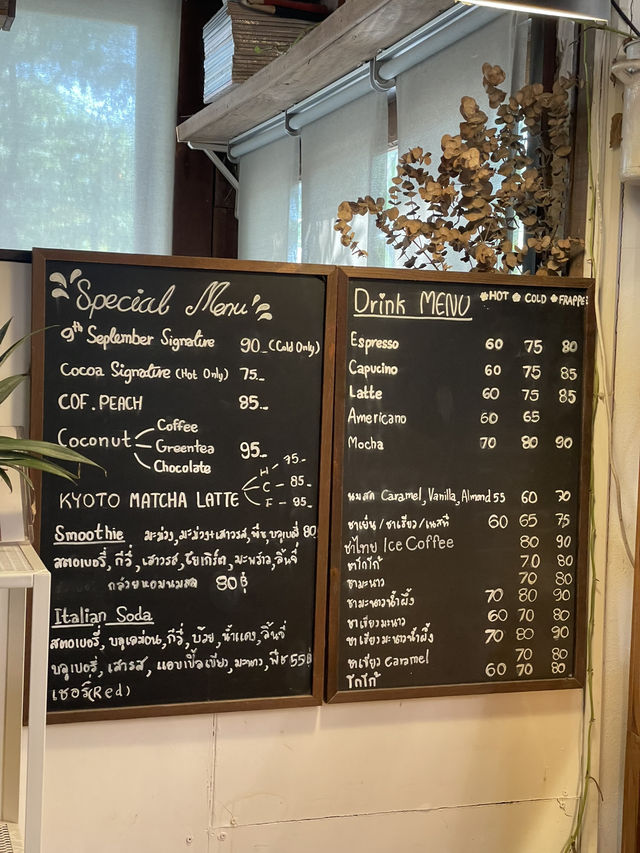 Special Menu
9th September Signature 90.- (Cold Only)
Cocoa Signature (Hot Only) 75.-
COF. PEACH 85.-
Coconut Coffee
Greentea 95.-
Chocolate
KYOTO MATCHA LATTE H - 75.-
C - 85.-
F - 85.-
Smoothie มะม่วง, มะม่วง+เสาวรส, พีช, บลูเบอรี่ 80
สตอเบอรี่, กีวี่, เสาวรส, โยเกิร์ต, มะพร้าว, ลิ้นจี่
กล้วยหอมนมสด 80฿
Italian Soda
สตอเบอรี่, บลูเลม่อน, กีวี่, บ๊วย, น้ำแดง, ลิ้นจี่
บลูเบอรี่, เสารส, แอบเปิ้ลเขียว, มะนาว, พีช 55฿
(Red)
Drink MENU HOT COLD FRAPPE
Espresso 60 75 80
Capucino 60 75 85
Latte 60 75 85
Americano 60 65
Mocha 70 80 90
นมสด Caramel, Vanilla, Almond 55 60 70
ชาเย็น / ชาเขียว / เนสที 60 65 75
ชาไทย Ice Coffee 80 90
โกโก้ 70 80
ชามะนาว 70 80
ชามะนาวน้ำผึ้ง 70 80 90
ชาเขียวมะนาว 60 70 80
ชาเขียวมะนาวน้ำผึ้ง 70 80 90
ชาเขียว Caramel 70 80
โกโก้ 60 70 80